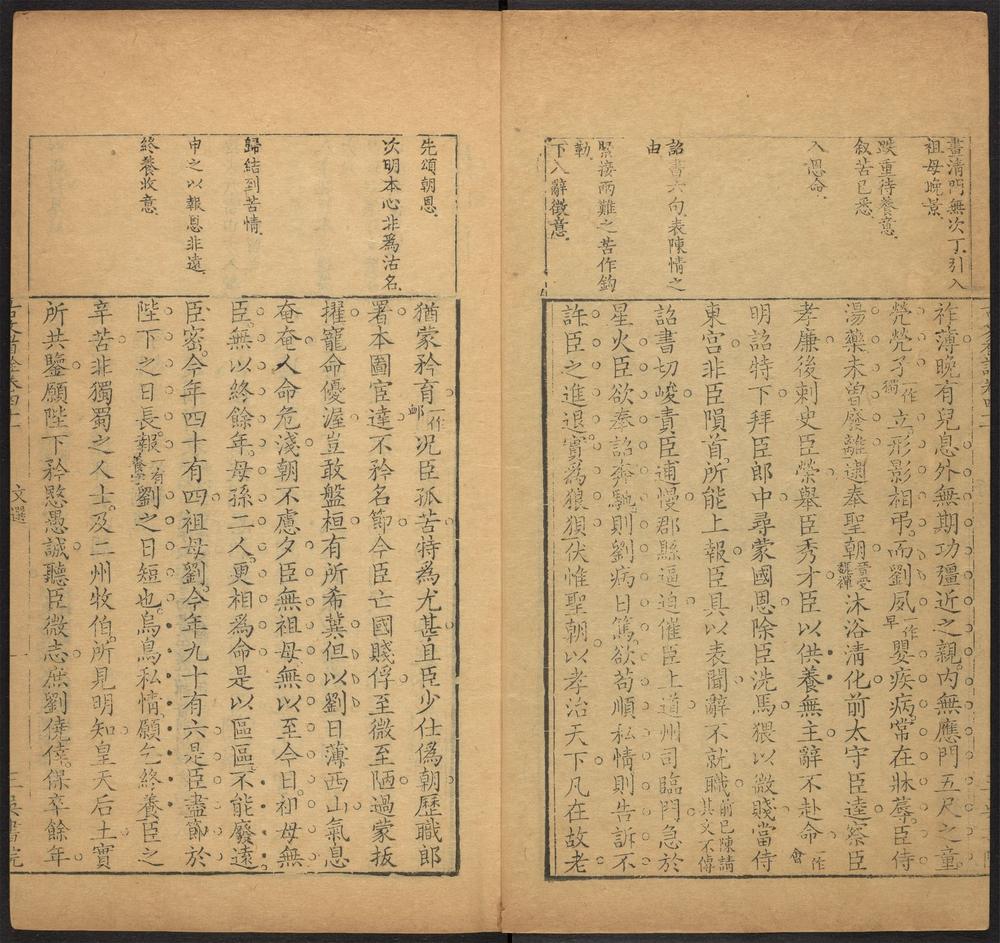 書清門無次丁引入
祖母晚景
跌重待養意
叙苦已悉
入偲命
詔書六句表陳情之
由
緊接兩難之苦作鈎
勒
下入辭徵意
祚薄晚有兒息外無期功彊近之親内無應門五尺之童
煢煢孑一作獨立形影相弔而劉夙一作早嬰疾病常在牀蓐臣侍
湯藥未曾廢離逮奉聖朝晉受魏禪沐浴清化前太守臣逵察臣
孝廉後刺史臣榮舉臣秀才臣以供養無主辭不赴命一作會
明詔特下拜臣郎中尋蒙國恩除臣洗馬猥以微賤當侍
東宫非臣隕首所能上報臣具以表聞辭不就職前已陳請其文不傳
詔書切峻責臣逋慢郡縣逼迫催臣上道州司臨門急於
星火臣欲奉詔奔馳則劉病日篤欲苟順私情則告訴不
許臣之進退實爲狼狽伏惟聖朝以孝治天下凡在故老
先頌朝恩
次明本心非爲沽名
歸結到苦情
申之以報恩非遠
終養收意
猶蒙矜育一作卹况臣孤苦特爲尤甚且臣少仕僞朝歷職郎
署本圖宦達不矜名節今臣亡國賤俘至微至陋過蒙扳
擢寵命優渥豈敢盤桓有所希冀但以劉日薄西山氣息
奄奄人命危淺朝不慮夕臣無祖母無以至今日祖母無
臣無以終餘年母孫二人更相爲命是以區區不能廢遠
臣密今年四十有四祖母劉今年九十有六是臣盡節於
陛下之日長報一有養字劉之日短也烏鳥私情願乞終養臣之
辛苦非獨蜀之人士及二州牧伯所見明知皇天后土實
所共鑒願陛下矜愍愚誠聽臣微志庶劉僥倖保卒餘年
文選